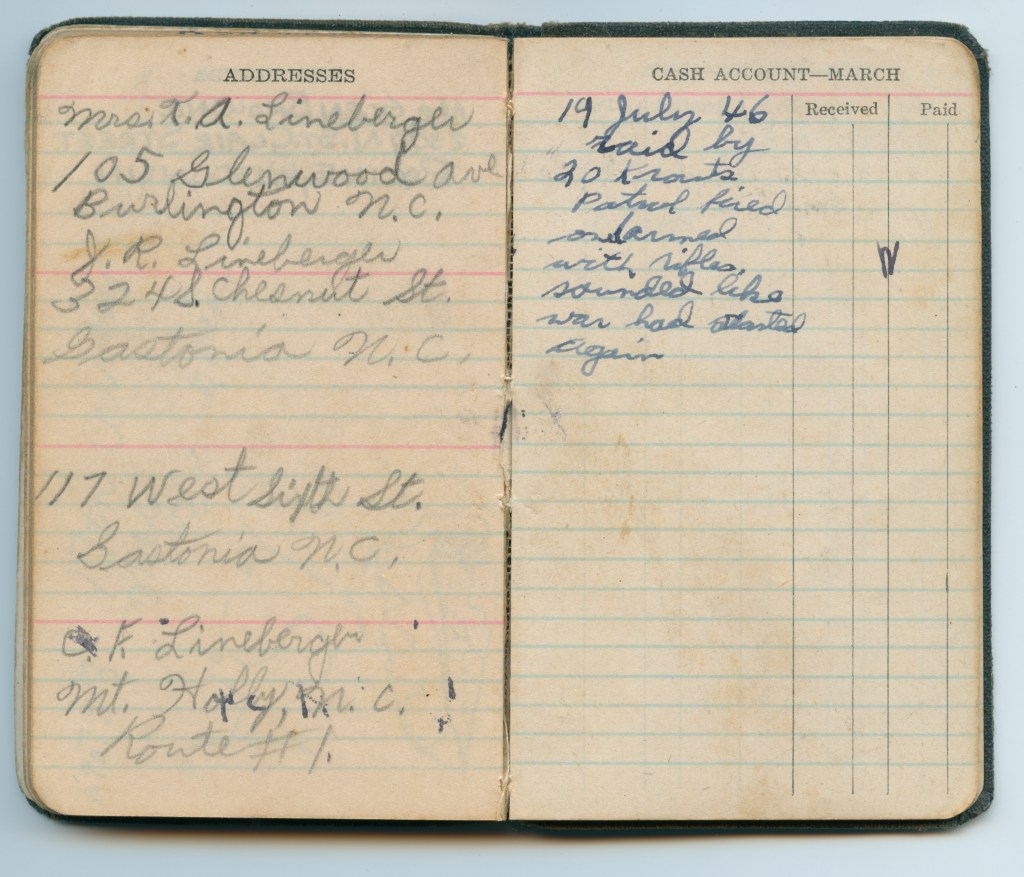 ADDRESSES
Mrs. K. A. Lineberger
105 Glenwood Ave
Burlington N.C.
J. R. Lineberger
324 S. Chesnut St.
Gastonia N.C.
117 West Sixth St.
Gastonia N.C.
F. Lineberger
Mt. Holly, N.C.
Route # 1.
CASH ACCOUNT—MARCH
Received Paid
19 July 46
raid by
20 Krauts
Patrol fired
on armed
with rifles.
sounded like
war had started
again